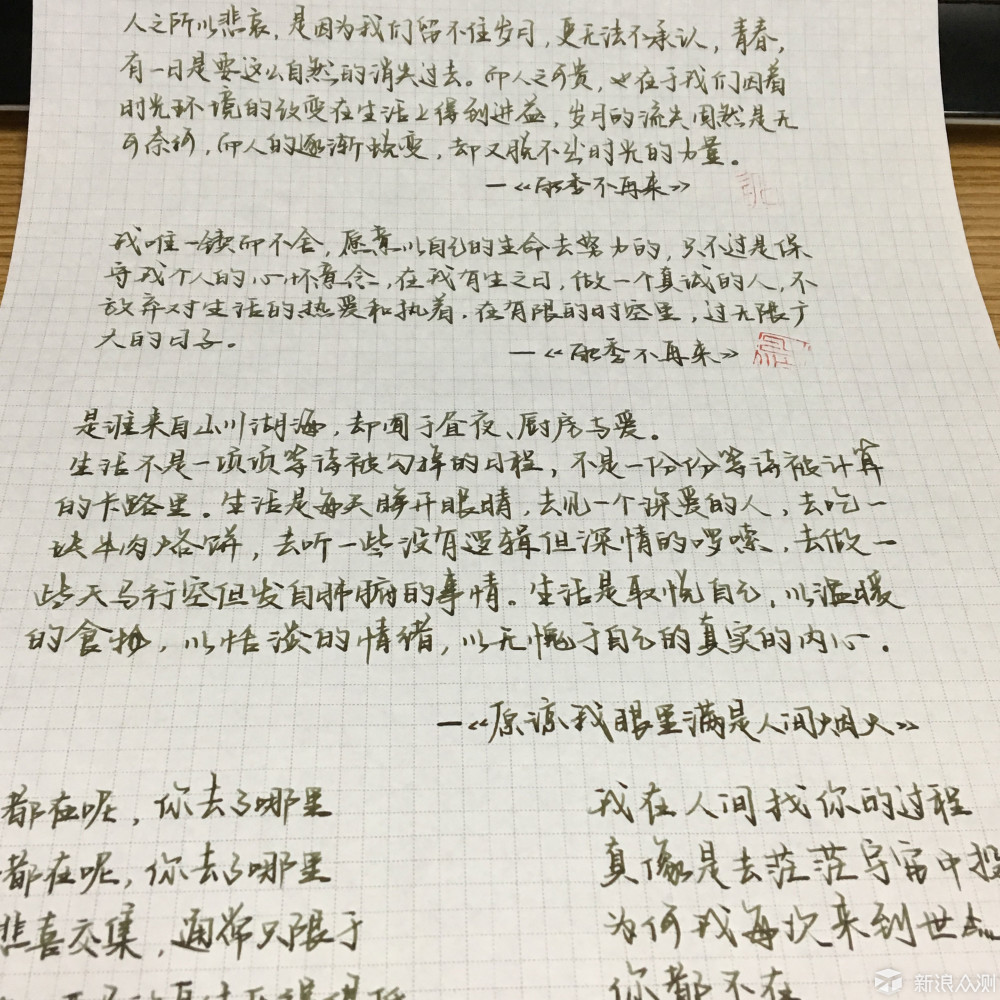 人之所以悲哀，是因为我们留不住岁月，更无法不承认，青春，
有一日是要这么自然的消失过去。而人之可贵，也在于我们因着
时光环境的改变在生活上得到进益，岁月的流失固然是无
可奈何，而人的逐渐蜕变，却又脱不出时光的力量。
—《雨季不再来》
我唯一锲而不舍，愿意以自己的生命去努力的，只不过是保
守我个人的心怀意念，在我有生之日，做一个真诚的人，不
放弃对生活的热爱和执着，在有限的时空里，过无限广
大的日子。
—《雨季不再来》
是谁来自山川湖海，却囿于昼夜、厨房与爱。
生活不是一项项等待被勾掉的日程，不是一份份等待被计算
的卡路里。生活是每天睁开眼睛，去见一个深爱的人，去吃一
块牛肉烙饼，去听一些没有逻辑但深情的啰嗦，去做一
些天马行空但发自肺腑的事情。生活是取悦自己，以温暖
的食物，以恬淡的情绪，以无愧于自己的真实的内心。
—《原谅我眼里满是人间烟火》
都在呢，你去了哪里
都在呢，你去了哪里
悲喜交集，通常只限于
我在人间找你的过程
真像是去茫茫宇宙中投
为何我每次来到世上
你都不在
新浪众测